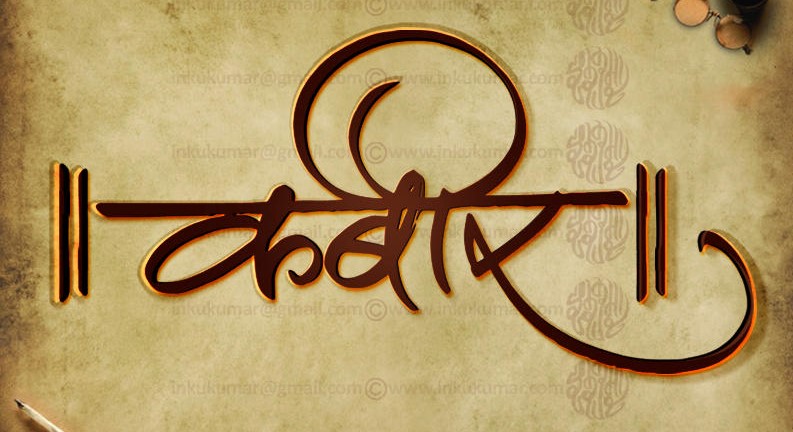 inkukumar@gmail.com©www.inkukumar.com
inkukumar@gmail.com©www.inkukumar.com
inkukumar@gmail.com©www.inkukumar.com
॥ कबीर ॥
inkukumar@gmail.com©www.inkukumar.com
inkukumar@gmail.com©www.inkukumar.com
inkukumar@gmail.com©www.inkukumar.com